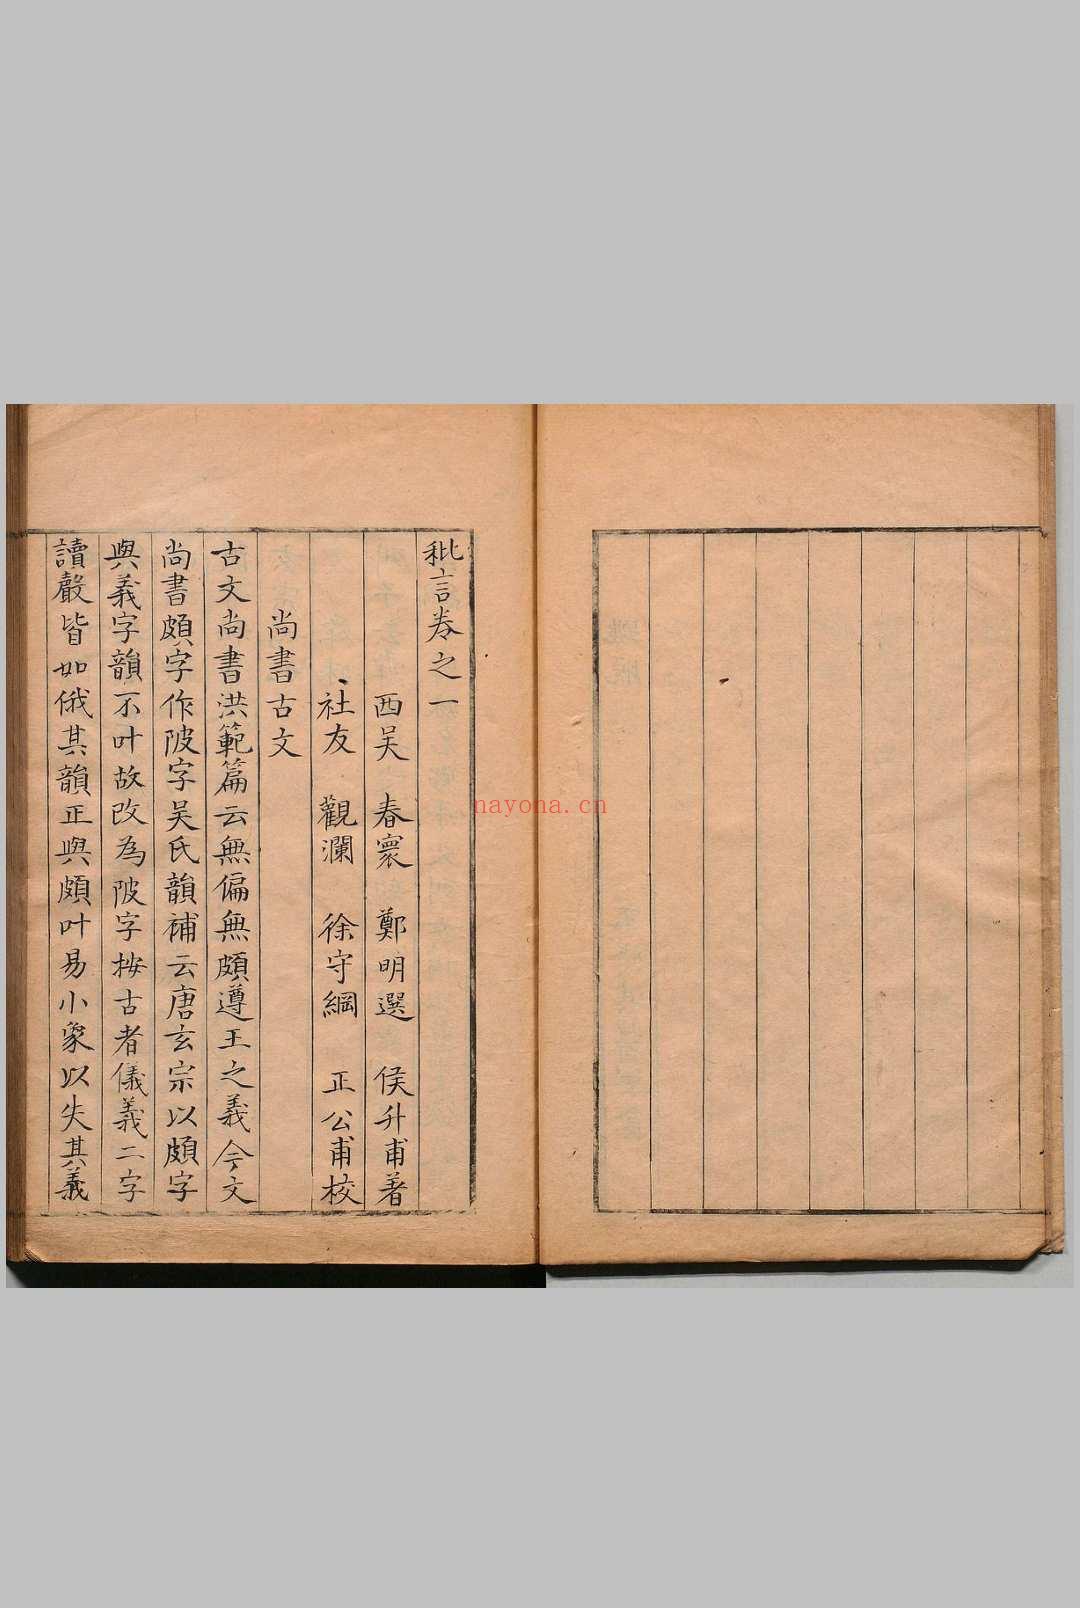 秕言卷之一
西吴 春寰 鄭明選 侯升甫著
社友 觀瀾 徐守綱 正公甫校
尚書古文
古文尚書洪範篇云無偏無頗遵王之義今文
尚書頗字作陂字吴氏韻補云唐玄宗以頗字
與義字韻不叶故改為陂字按古者儀義二字
讀聲皆如俄其韻正與頗叶易小象以失其義
nayona.cn